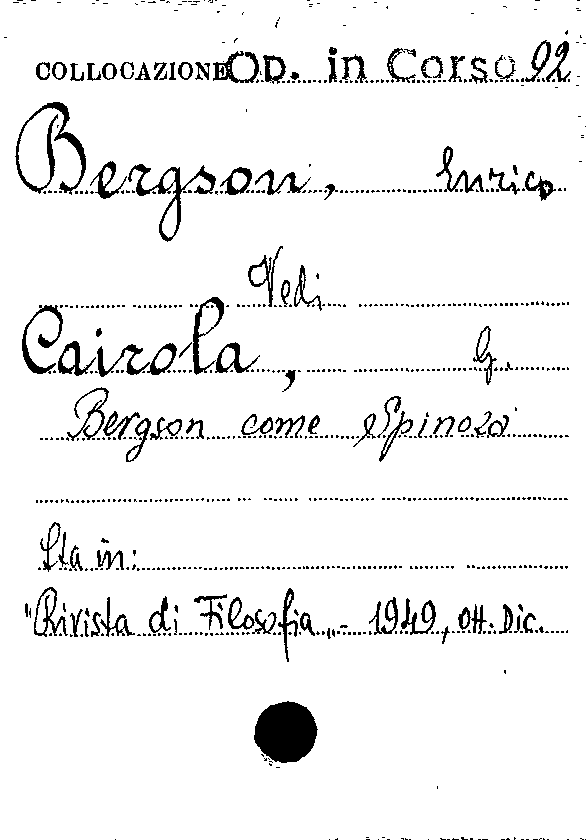 COLLOCAZIONE Op. in Corso 92
Bergson, Enrico
Vedi
Cairola, G.
Bergson come Spinoza
Sta in:
"Rivista di Filosofia„ - 1949, Ott. Dic.